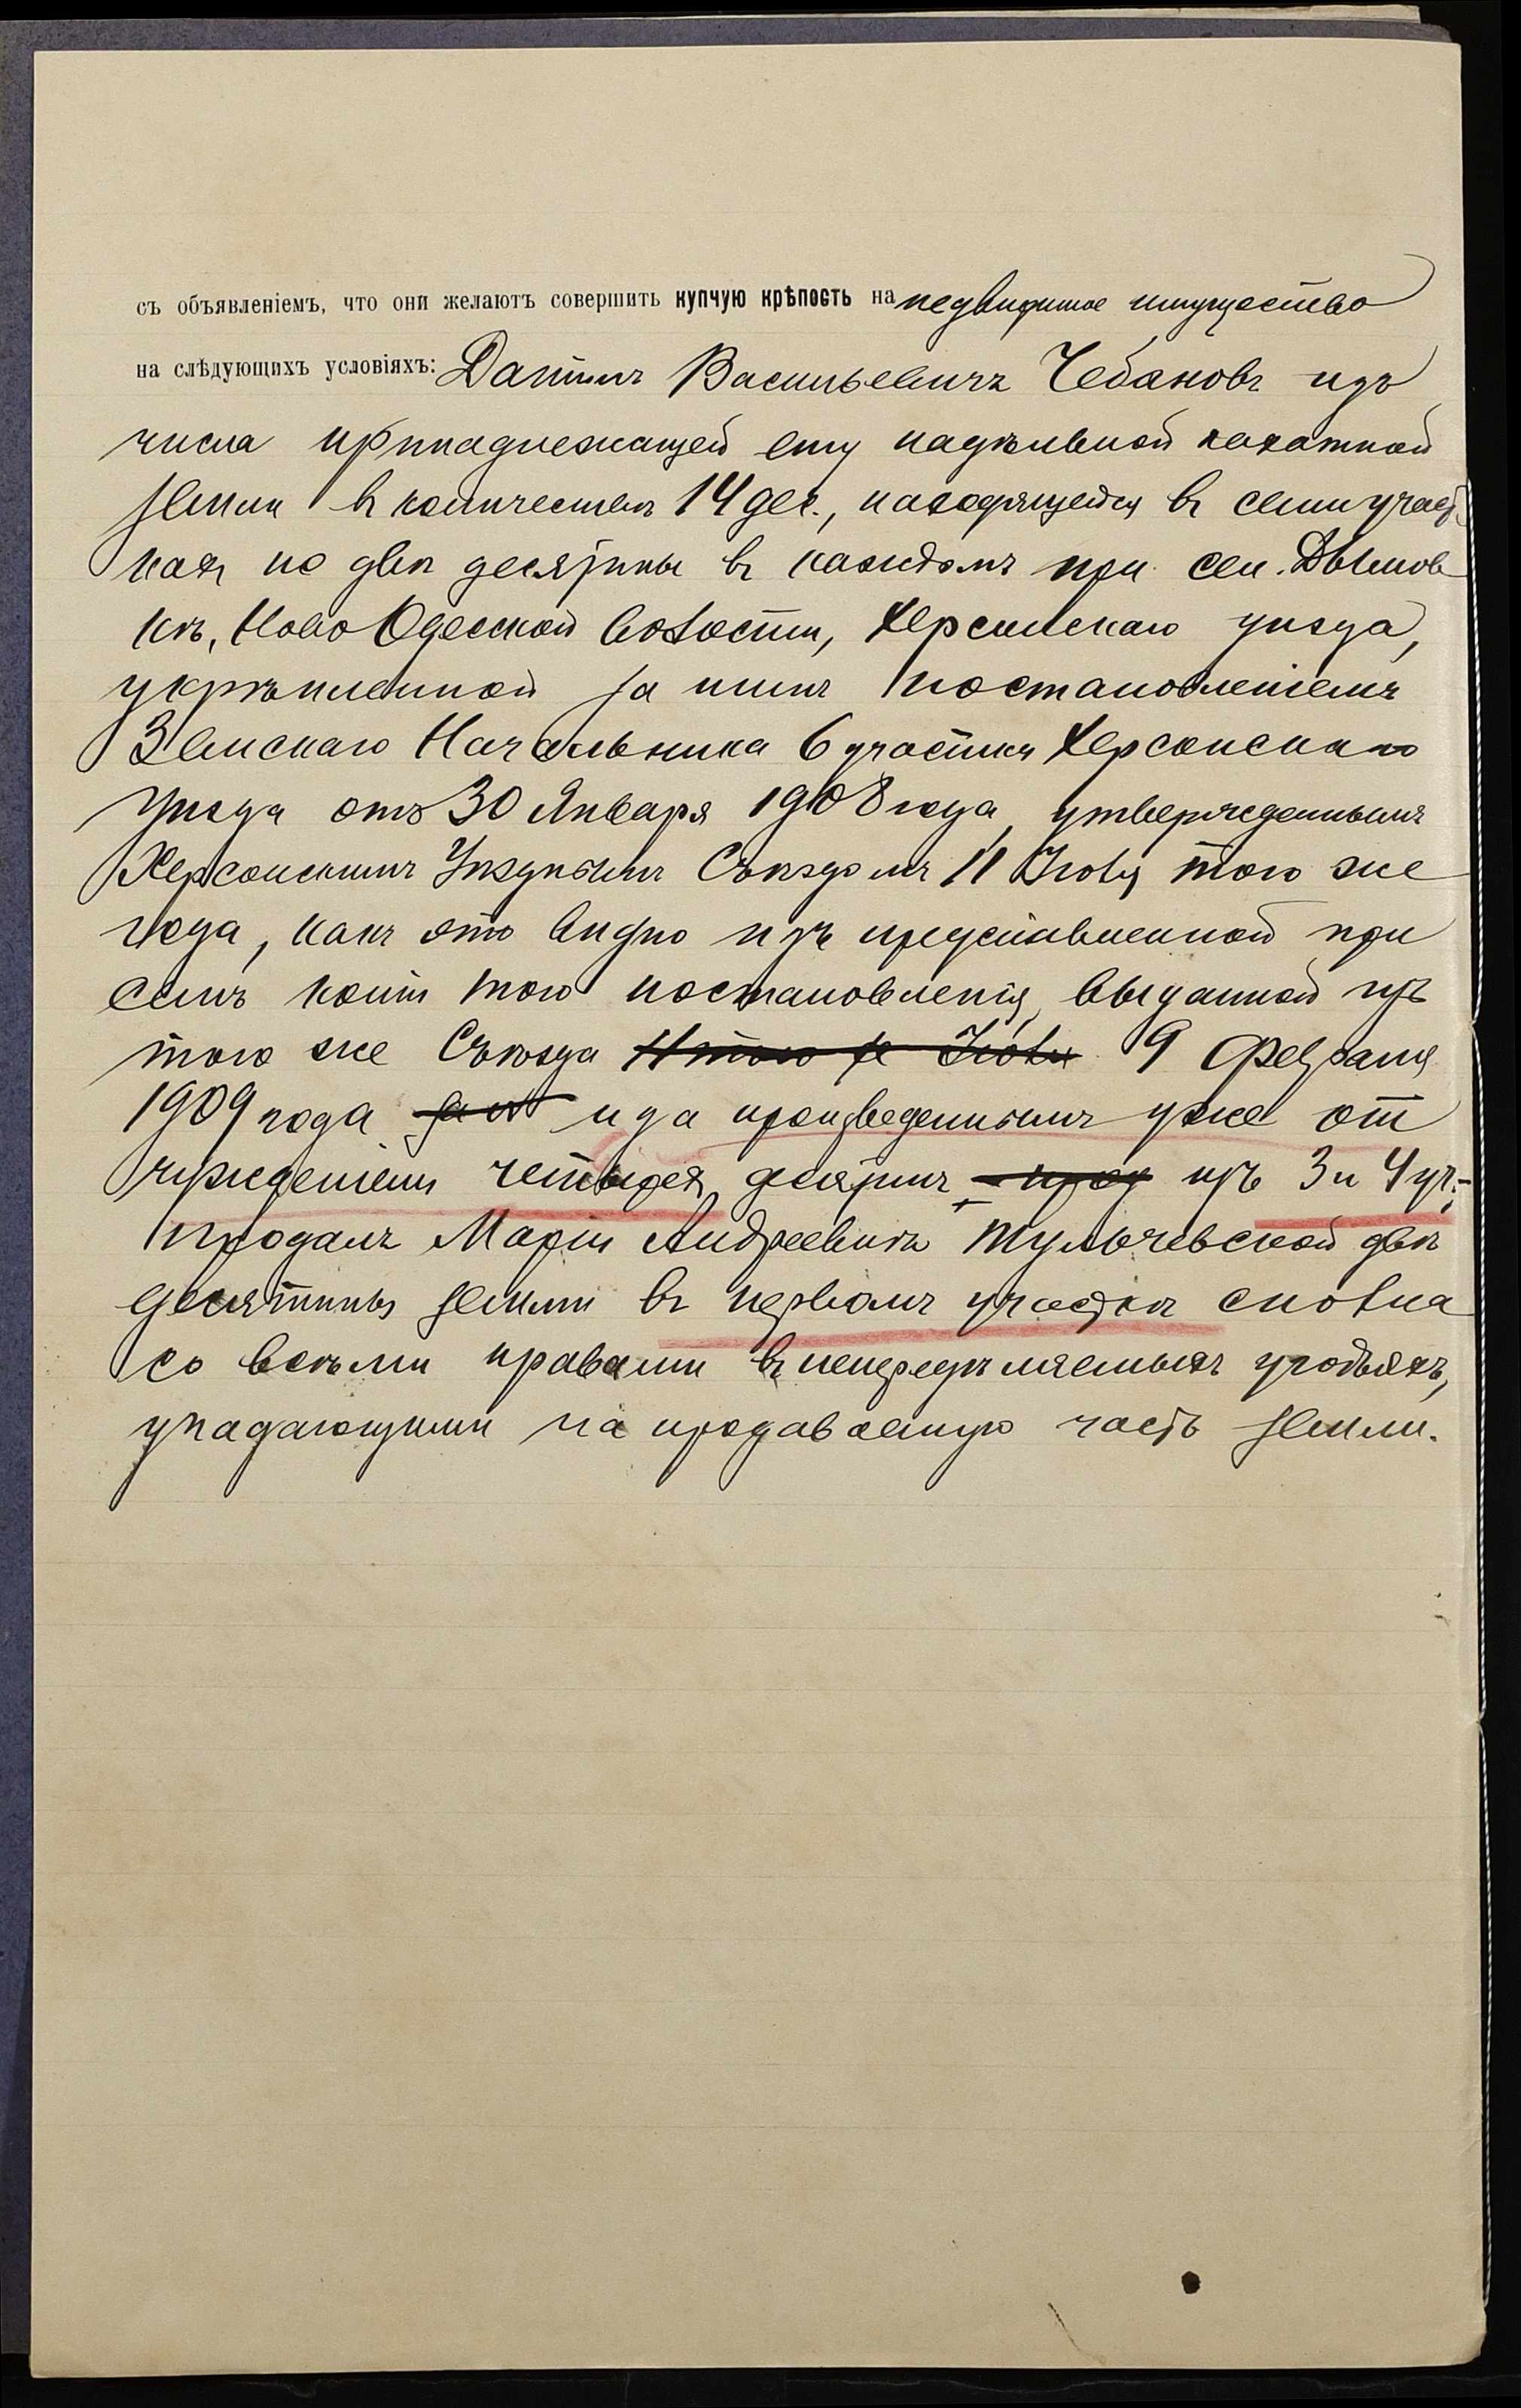 съ объявленіемъ, что они желаютъ совершить купчую крѣпость на недвижимое имущество
на слѣдующихъ условіяхъ: Даніилъ Васильевичъ Чебановъ изъ
числа принадлежащей ему надѣльной пахатной
земли въ количествѣ 14 дес., находящейся въ семи участ-
кахъ по двѣ десятины въ каждомъ при сел. Дымов
кѣ, Ново Одесской волости, Херсонскаго уѣзда,
укрѣпленной за нимъ постановленіемъ
Земскаго Начальника 6 участка Херсонскаго
уѣзда отъ 30 Января 1908 года, утвержденнымъ
Херсонскимъ Уѣзднымъ Съѣздомъ 11 Іюля того же
года, какъ это видно изъ представленной при
семъ копіи того постановленія, выданной изъ
того же Съѣзда 11 того же Іюля 9 Февраля
1909 года за и за произведеннымъ уже от
чужденіемъ четырехъ десятинъ прод изъ 3 и 4 уч.;
продалъ Маріи Андреевнѣ Тульчевской двѣ
десятины земли въ первомъ участкѣ сполна
со всѣми правами въ непередѣляемыхъ угодьяхъ,
упадающими на продаваемую часть земли.